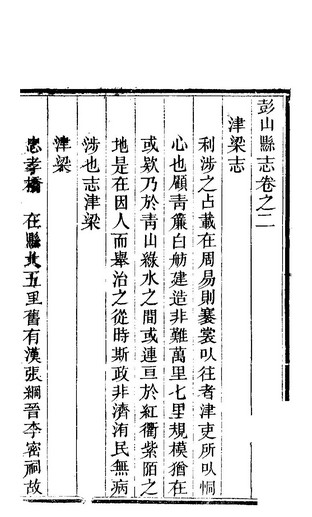 彭山縣志卷之二
津梁志
利涉之占載在周易則褰裳以往者津吏所以恫
心也顧青簾白舫建造非難萬里七里規模猶在
或欵乃於青山綠水之間或連亘於紅衢紫陌之
地是在因人而舉治之從時斯政非濟洧民無病
涉也志津梁
津梁
忠孝橋　在縣北五里舊有漢張綱晉李密祠故